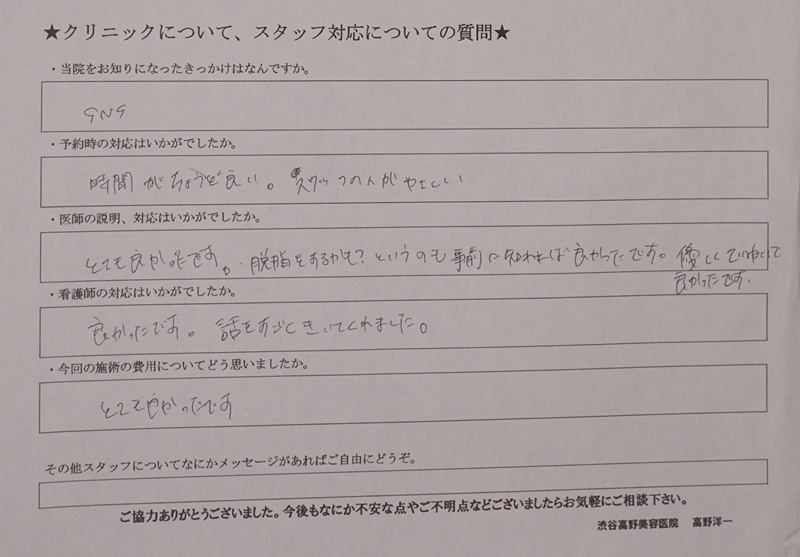 ★クリニックについて、スタッフ対応についての質問★
・当院をお知りになったきっかけはなんですか。
SNS
・予約時の対応はいかがでしたか。
時間がちょうど良い。スタッフの人がやさしい
・医師の説明、対応はいかがでしたか。
とても良かったです。脱脂をするかも？というのも事前に知れれば良かったです。優しくていねいで
良かったです。
・看護師の対応はいかがでしたか。
良かったです。話をすごくきいてくれました。
・今回の施術の費用についてどう思いましたか。
とても良かったです
その他スタッフについてなにかメッセージがあればご自由にどうぞ。
ご協力ありがとうございました。今後もなにか不安な点やご不明点などございましたらお気軽にご相談下さい。
渋谷高野美容医院　高野洋一